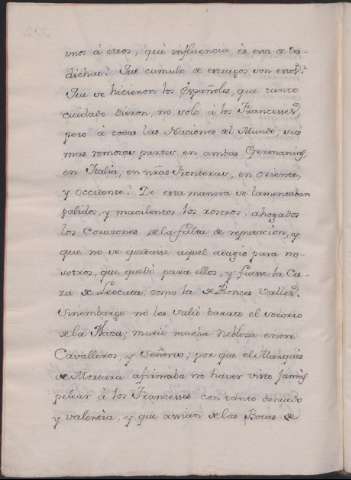 unos á otros, què influencia es esta de la
dicha? Que cumulo de son
Que se hicieron los Españoles, que tanto
cuidado dieron, no solo à los Franceses,
pero à todas las Naciones del Mundo, á las
mas remotas partes en ambas Germanias
en Italia, en nrãs Fronteras, en Oriente,
y Occidente? De esta manera se lamentaban
palidos, y macilentos los rostros, ahogados
los Corazones de la falta de reputacion, y
que no se quedase aquel adagio para no-
sotros, que quedó para ellos, y fuese la Ca-
za de Leocata, como la de Ronces Valles.
Sinembargo no les valió barato el socorro
de la Plaza; murió mucha Nobleza entre
Cavalleros, y Señores; por que el Marques
de Mortara afirmaba no haver visto jamas
pelear à los Franceses con tanto denuedo
y valentia, y que a mas de las Bocas de